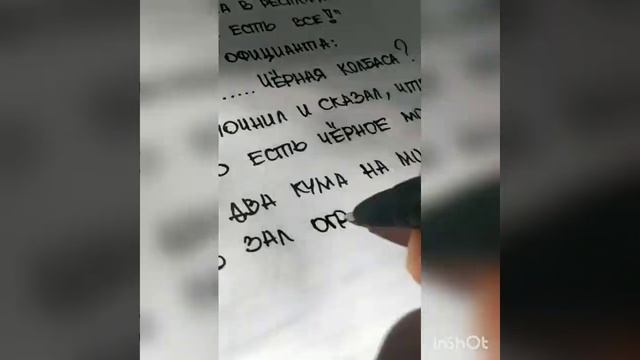 А В РЕСТ
ЕСТЬ ВСЕ!!"
ОФИЦИАНТА:
..... ЧЁРНАЯ КОЛБАСА?
И СКАЗАЛ, ЧТ
ЕСТЬ ЧЁРНОЕ
ДВА КУМА НА
ЗАЛ ОГР
inShOt